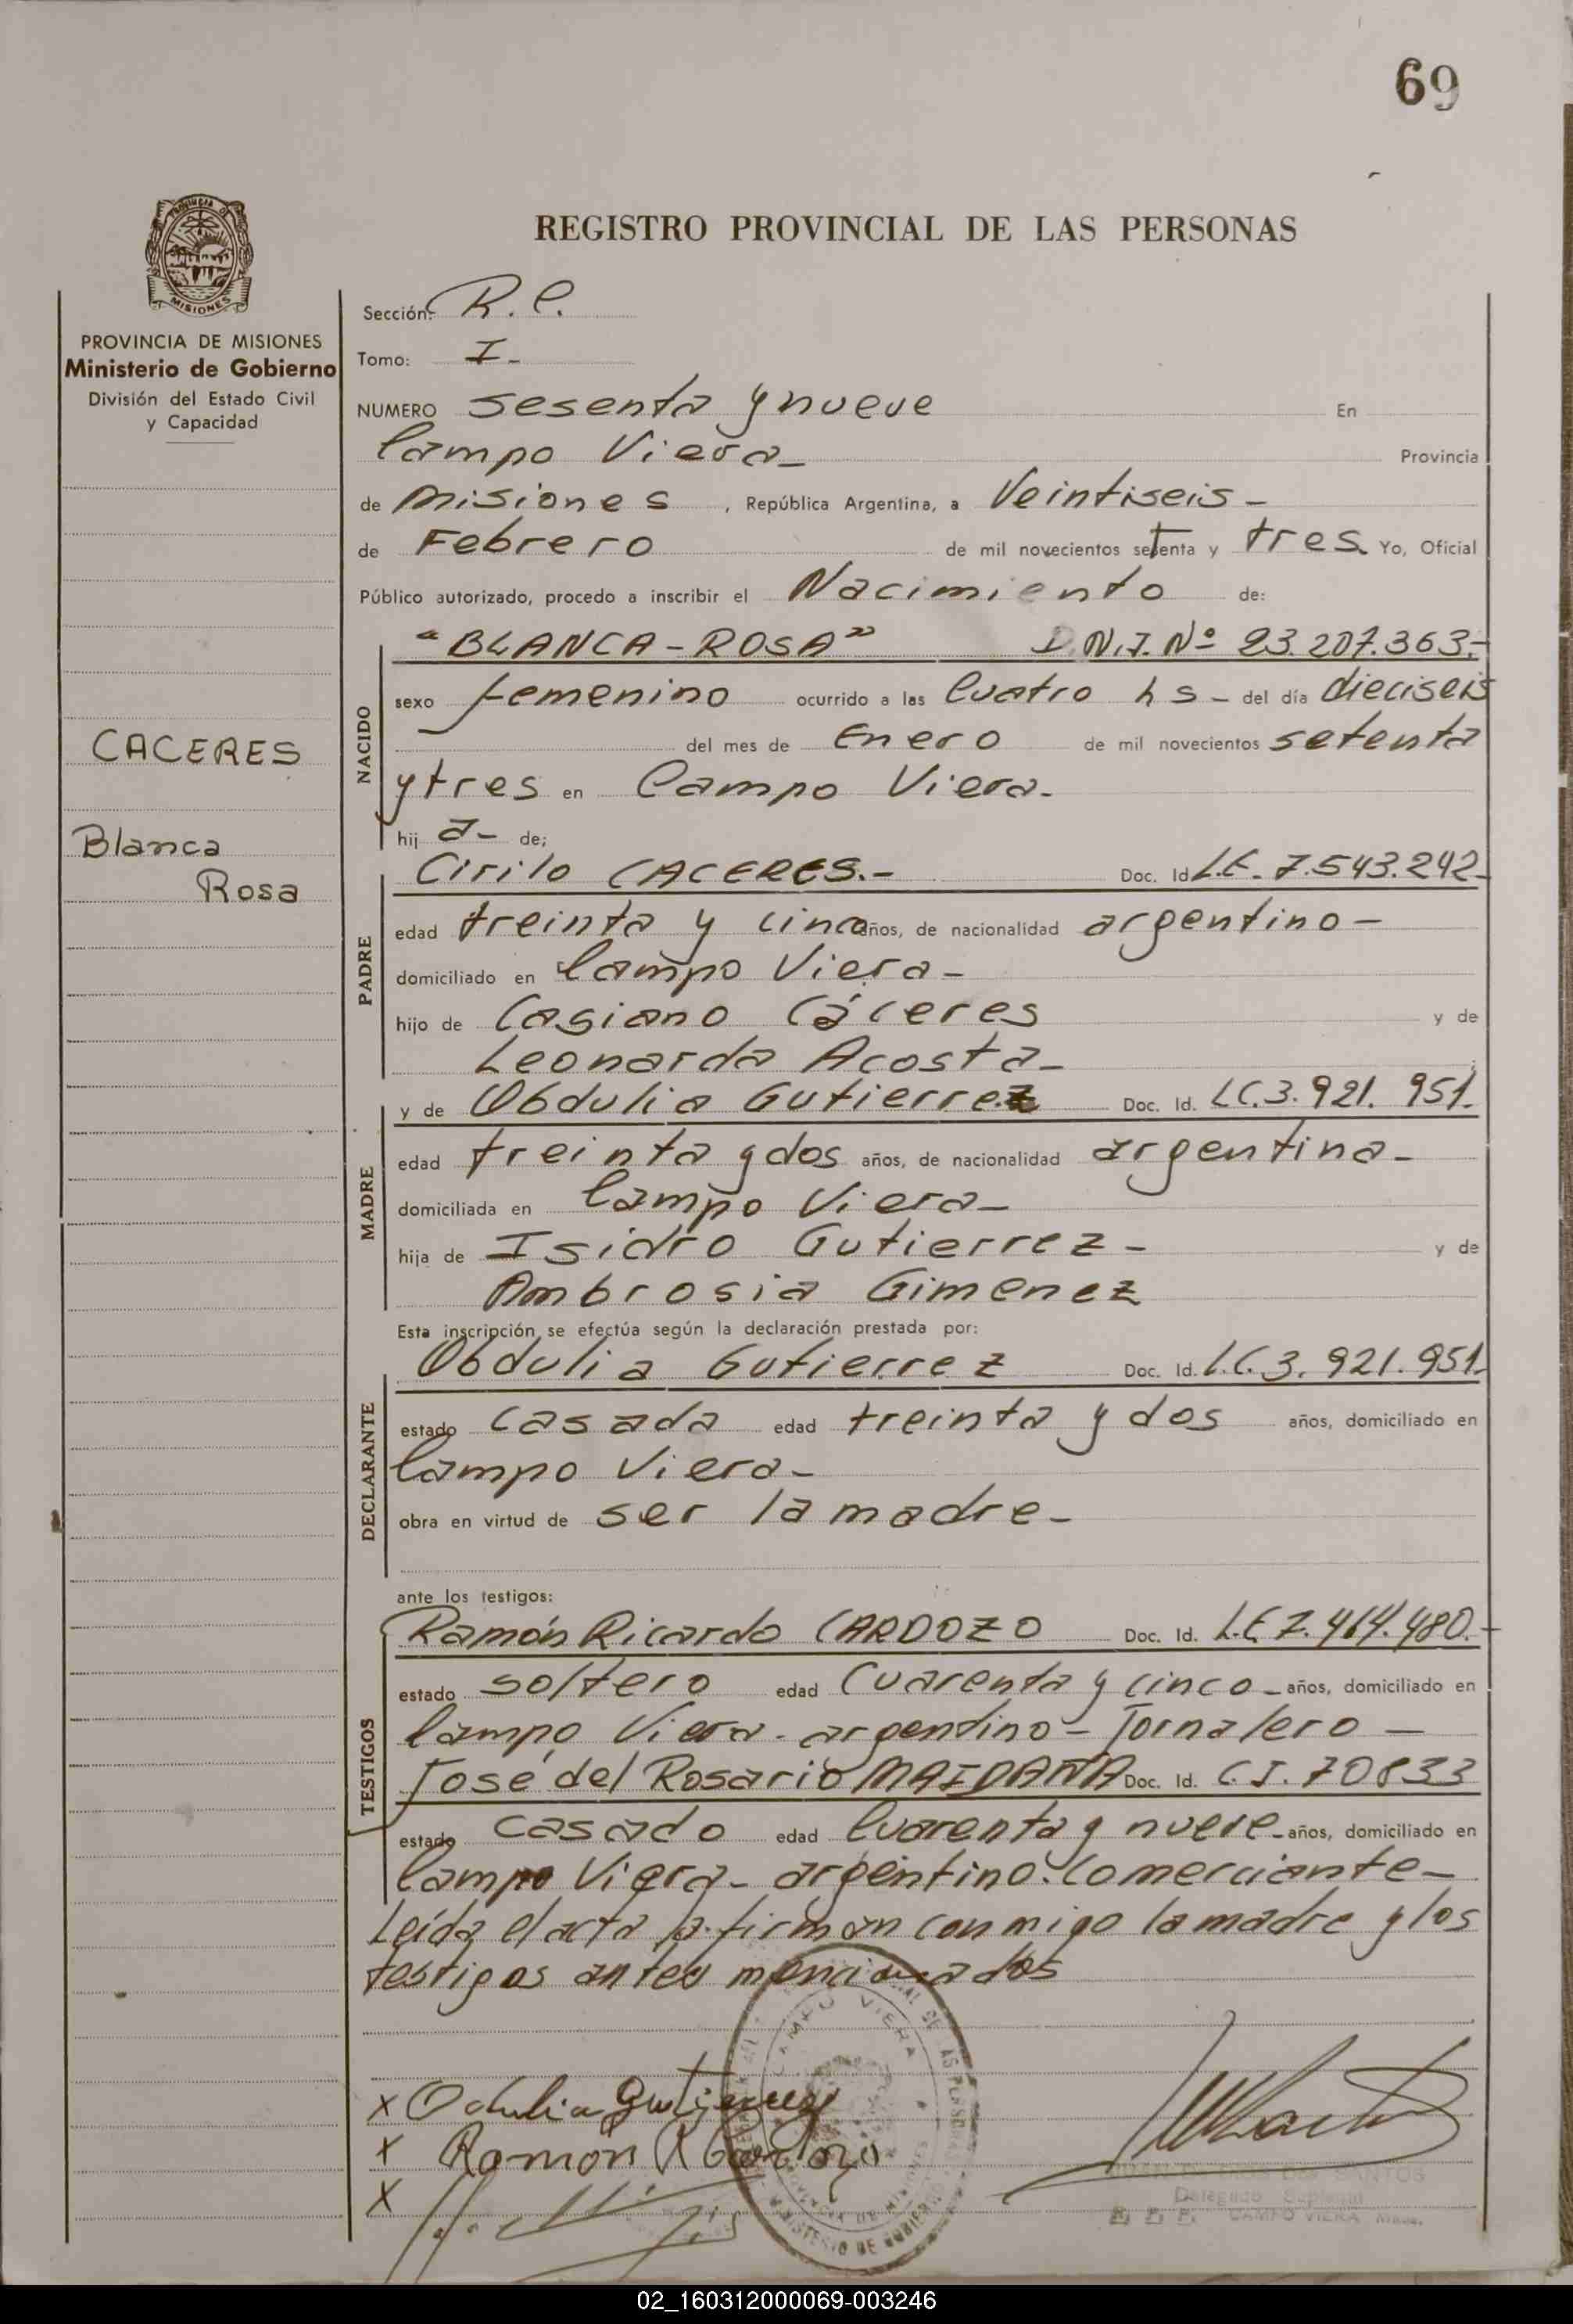 69
REGISTRO PROVINCIAL DE LAS PERSONAS
PROVINCIA DE MISIONES
Ministerio de Gobierno
División del Estado Civil
y Capacidad
CACERES
Blanca
Rosa
Sección: R.C.
Tomo: I-
NUMERO sesenta y nueve En
Campo Viera- Provincia
de Misiones, República Argentina, a Veintiseis-
de Febrero de mil novecientos setenta y tres. Yo, Oficial
Público autorizado, procedo a inscribir el Nacimiento de:
NACIDO
"BLANCA-ROSA" D.N.I. Nº 23.207.363.-
sexo femenino ocurrido a las Cuatro hs- del día dieciseis
del mes de Enero de mil novecientos setenta
y tres en Campo Viera.
hij a- de;
PADRE
Cirilo CACERES.- Doc. Id L.E. 7.543.242-
edad treinta y cinco años, de nacionalidad argentino-
domiciliado en Campo Viera-
hijo de Casiano Cáceres y de
Leonarda Acosta-
MADRE
y de Obdulia Gutierrez Doc. Id. LC.3.921.951.
edad treinta y dos años, de nacionalidad argentina-
domiciliada en Campo Viera-
hija de Isidro Gutierrez- y de
Ambrosia Gimenez
Esta inscripción se efectúa según la declaración prestada por:
DECLARANTE
Obdulia Gutierrez Doc. Id. L.C.3.921.951-
estado casada edad treinta y dos años, domiciliado en
Campo Viera-
obra en virtud de ser la madre-
ante los testigos:
TESTIGOS
Ramón Ricardo CARDOZO Doc. Id. L.E 7.464.480.-
estado soltero edad Cuarenta y cinco- años, domiciliado en
Campo Viera- argentino- Jornalero-
José del Rosario MAIDANA Doc. Id. C.I. 70833
estado casado edad Cuarenta y nueve- años, domiciliado en
Campo Viera- argentino- Comerciante-
Leída el acta la firman conmigo la madre y los
testigos antes mencionados
x Odulia Gutierrez
x Ramon R Cardozo
x
CAMPO VIERA
MINISTERIO DE GOBIERNO
DOS SANTOS
Delegado Suplente
CAMPO VIERA
02_160312000069-003246